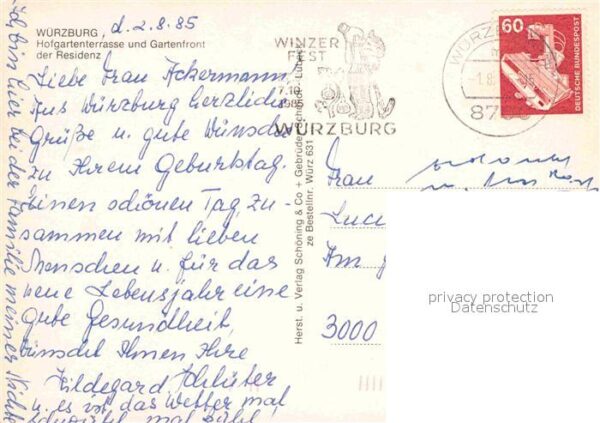 WÜRZBURG, d. 2.8.85
Hofgartenterrasse und Gartenfront
der Residenz
Liebe Frau Ackermann,
Aus Würzburg herzliche
Grüße u. gute Wünsche
zu Ihrem Geburtstag.
Einen schönen Tag, zu-
sammen mit lieben
Menschen u. für das
neue Lebensjahr eine
gute Gesundheit,
wünscht Ihnen Ihre
Hildegard Schlüter
u. es ist das Wetter mal
mal kühl
Ich bin hier bei der Familie meiner Nichte
Herst. u. Verlag Schöning & Co + Gebrüder Schmidt Lübeck
ze Bestellnr. Würz 631
WINZER
FEST
7.10.
1985
WÜRZBURG
WÜRZ
1.8. 85
87
60
DEUTSCHE BUNDESPOST
Frau
Luci
Am
3000
privacy protection
Datenschutz